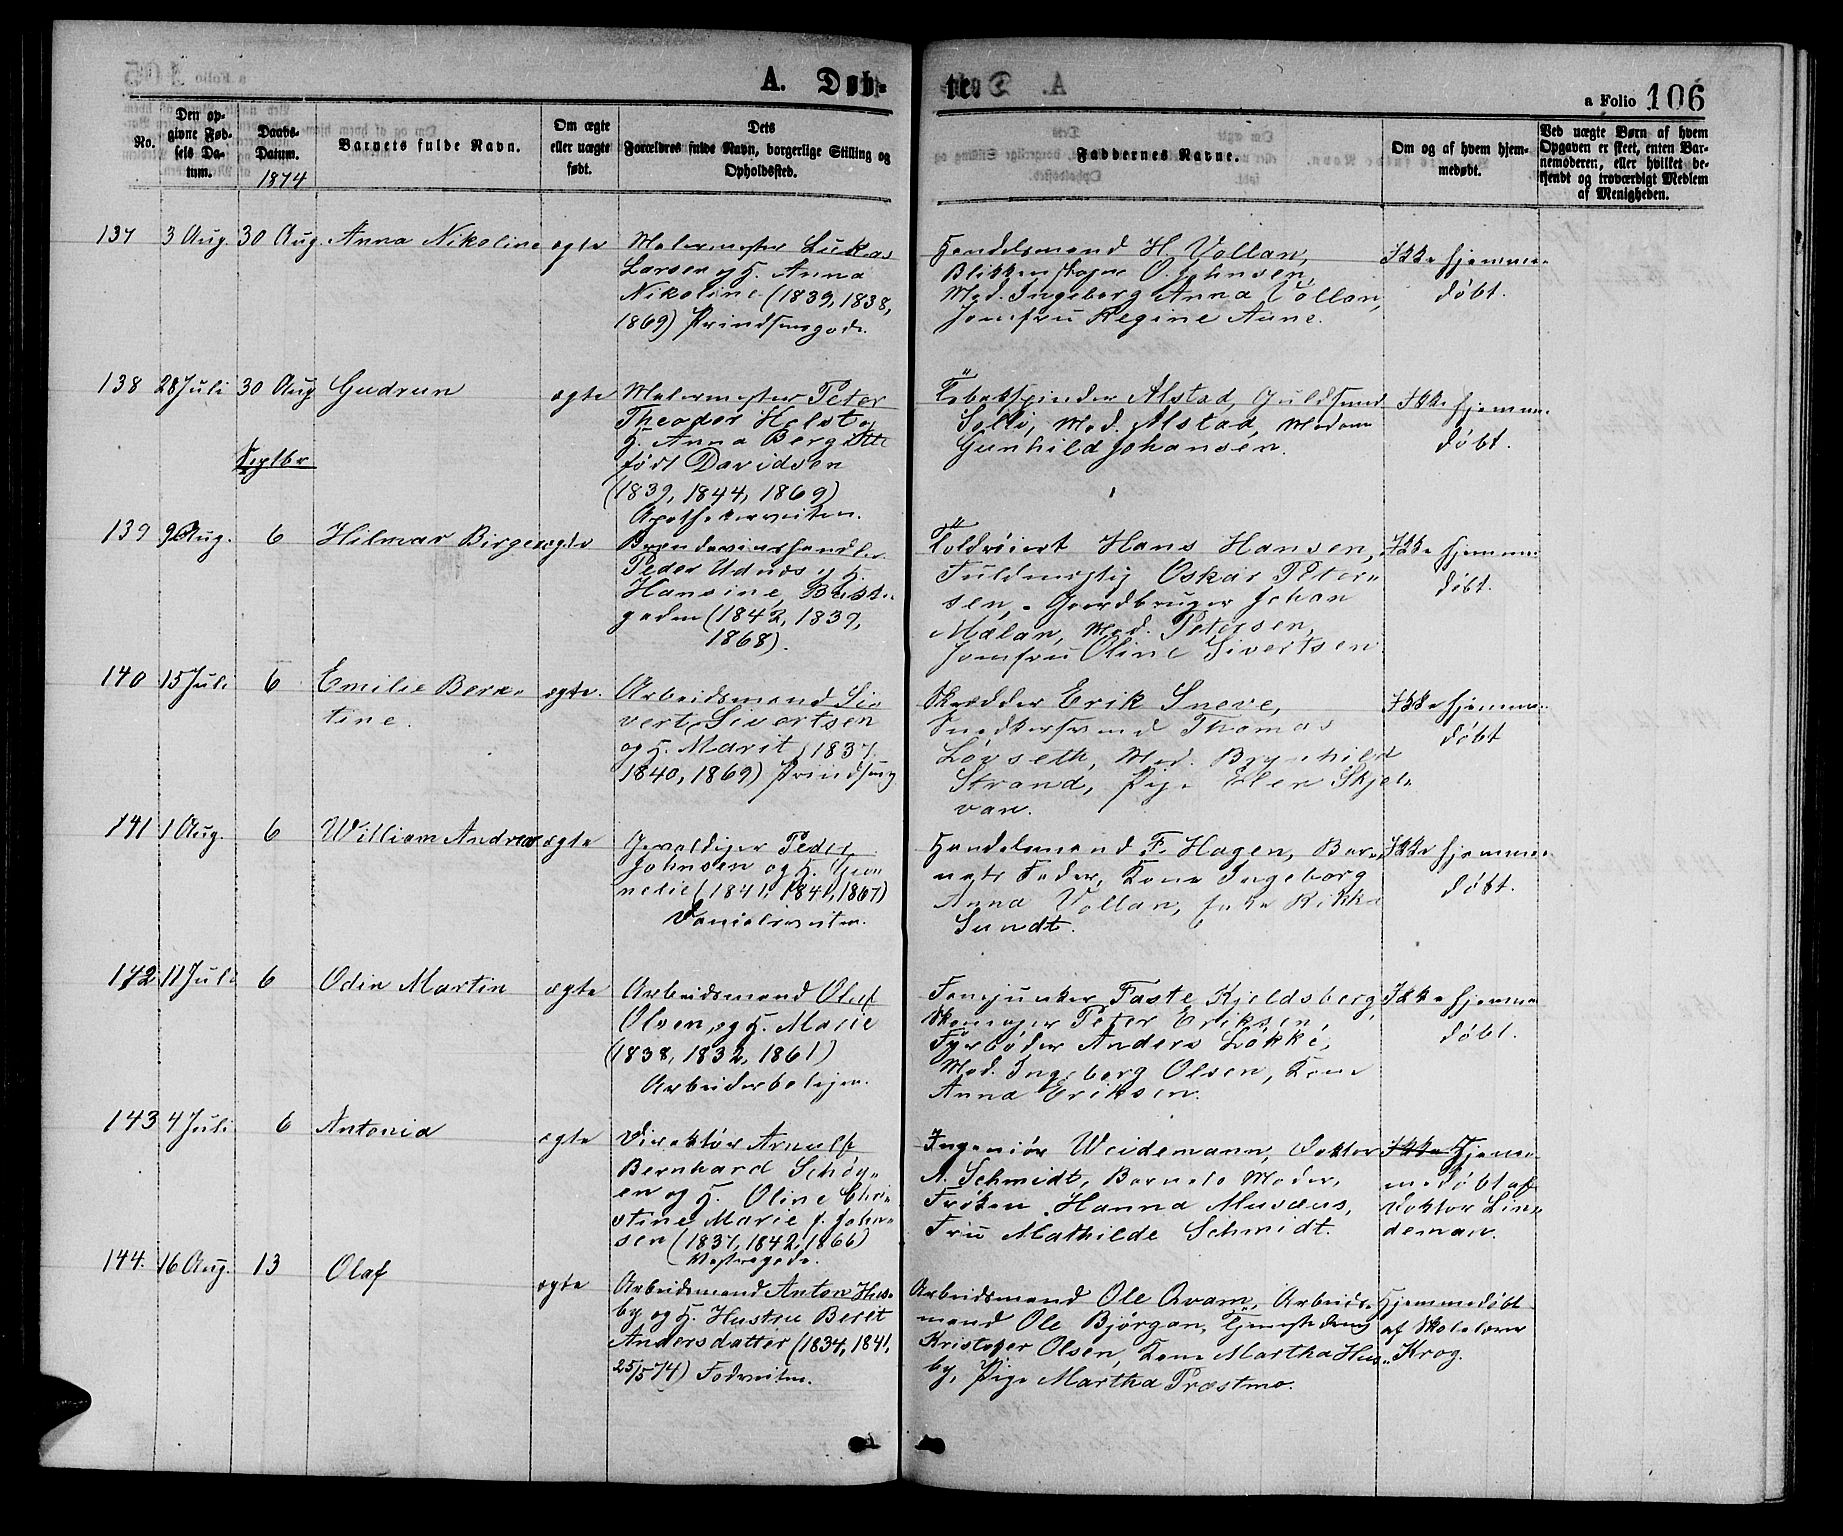 A. Døb-
te.
a Folio 106
No.
Den op-
givne Fød-
sels Da-
tum.
Daabs-
Datum.
1874
Barnets fulde Navn.
Om ægte
eller uægte
født.
Dets
Forældres fulde Navn, borgerlige Stilling og
Opholdssted.
Faddernes Navne.
Om og af hvem hjem-
medøbt.
Ved uægte Børn af hvem
Opgaven er skeet, enten Bar-
nemoderen, eller hvilket be-
kjendt og troværdigt Medlem
af Menigheden.
137 3 Aug. 30 Aug. Anna Nikoline ægte
Malermester Lukas
Larsen og H. Anna
Nikoline (1839, 1838,
1869) Prindsensgade.
Handelsmand H. Vollan,
Blikkenslager O. Johnsen,
Mad. Ingeborg Anna Vollan,
Jomfru Regine Aune.
Ikke hjemme-
døbt.
138 28 Juli 30 Aug Gudrun ægte
Malermester Peter
Theodor Holst og
H. Anna Bergitte
født Davidsen
(1839, 1844, 1869)
Apothekerveiten.
Tobakspinder Alstad, Guldsmed
Solli, Mad. Alstad, Madam
Gunhild Johansen.
Ikke hjemme-
døbt.
Septbr
139 9 Aug. 6 Hilmar Birger ægte
Brændevinshandler
Peder Udnæs og H.
Hansine, Bak-
gaden (1842, 1839,
1868).
Toldrorert Hans Hansen,
Fuldmægtig Oskar Peter-
sen, Gaardbruger Johan
Mælan, Mad. Petersen,
Jomfru Oline Sivertsen
Ikke hjemme-
døbt.
140 15 Juli 6 Emilie Bern-
tine. ægte.
Arbeidsmand Si-
vert Sivertsen
og H. Marit (1837,
1840, 1869) Prindsensg
Skrædder Erik Sneve,
Snedkersvend Thomas
Løvseth, Mad. Brynhild
Strand, Pige Elen Skjel-
van.
Ikke hjemme-
døbt
141 1 Aug. 6 William Andreas ægte
Gevaldiger Peder
Johnsen og H. Cor-
nelie (1841, 1841, 1867)
Danielsveiten.
Handelsmand F. Hagen, Bar-
nets Fader, Kone Ingeborg
Anna Vollan, Enke Rikke
Sundt.
Ikke hjemme-
døbt.
142 11 Juli 6 Odin Martin ægte
Arbeidsmand Oluf
Olsen og H. Marie
(1838, 1832, 1861)
Arbeiderboliger.
Fanejunker Faste Kjeldsberg,
Skomager Peter Eriksen,
Fyrbøder Anders Løkke,
Mad. Ingeborg Olsen, Kone
Anna Eriksen.
Ikke hjemme-
døbt.
143 4 Juli 6 Antonia ægte
Direktør Arnolf
Bernhard Schøy-
en og H. Oline Chri-
stine Marie f. John-
sen (1837, 1842, 1866)
Ingeniør Weidemann, Doktor
A. Schmidt, Barnets Moder,
Frøken Hanna Musæus,
Fru Mathilde Schmidt.
Ikke Hjem-
medøbt af
Doktor Lin-
deman.
144. 16 Aug. 13 Olaf ægte
Arbeidsmand Anton Hus-
by og H. Hustru Berit
Andersdatter (1834, 1841,
25/5 74) Fodveiten.
Arbeidsmand Ole Qvam, Arbeids-
mand Ole Bjørgan, Tjenestedreng
Kristofer Olsen, Kone Martha Hus-
by, Pige Martha Præstmo.
Hjemmedøbt
af Skolelærer
Krog.